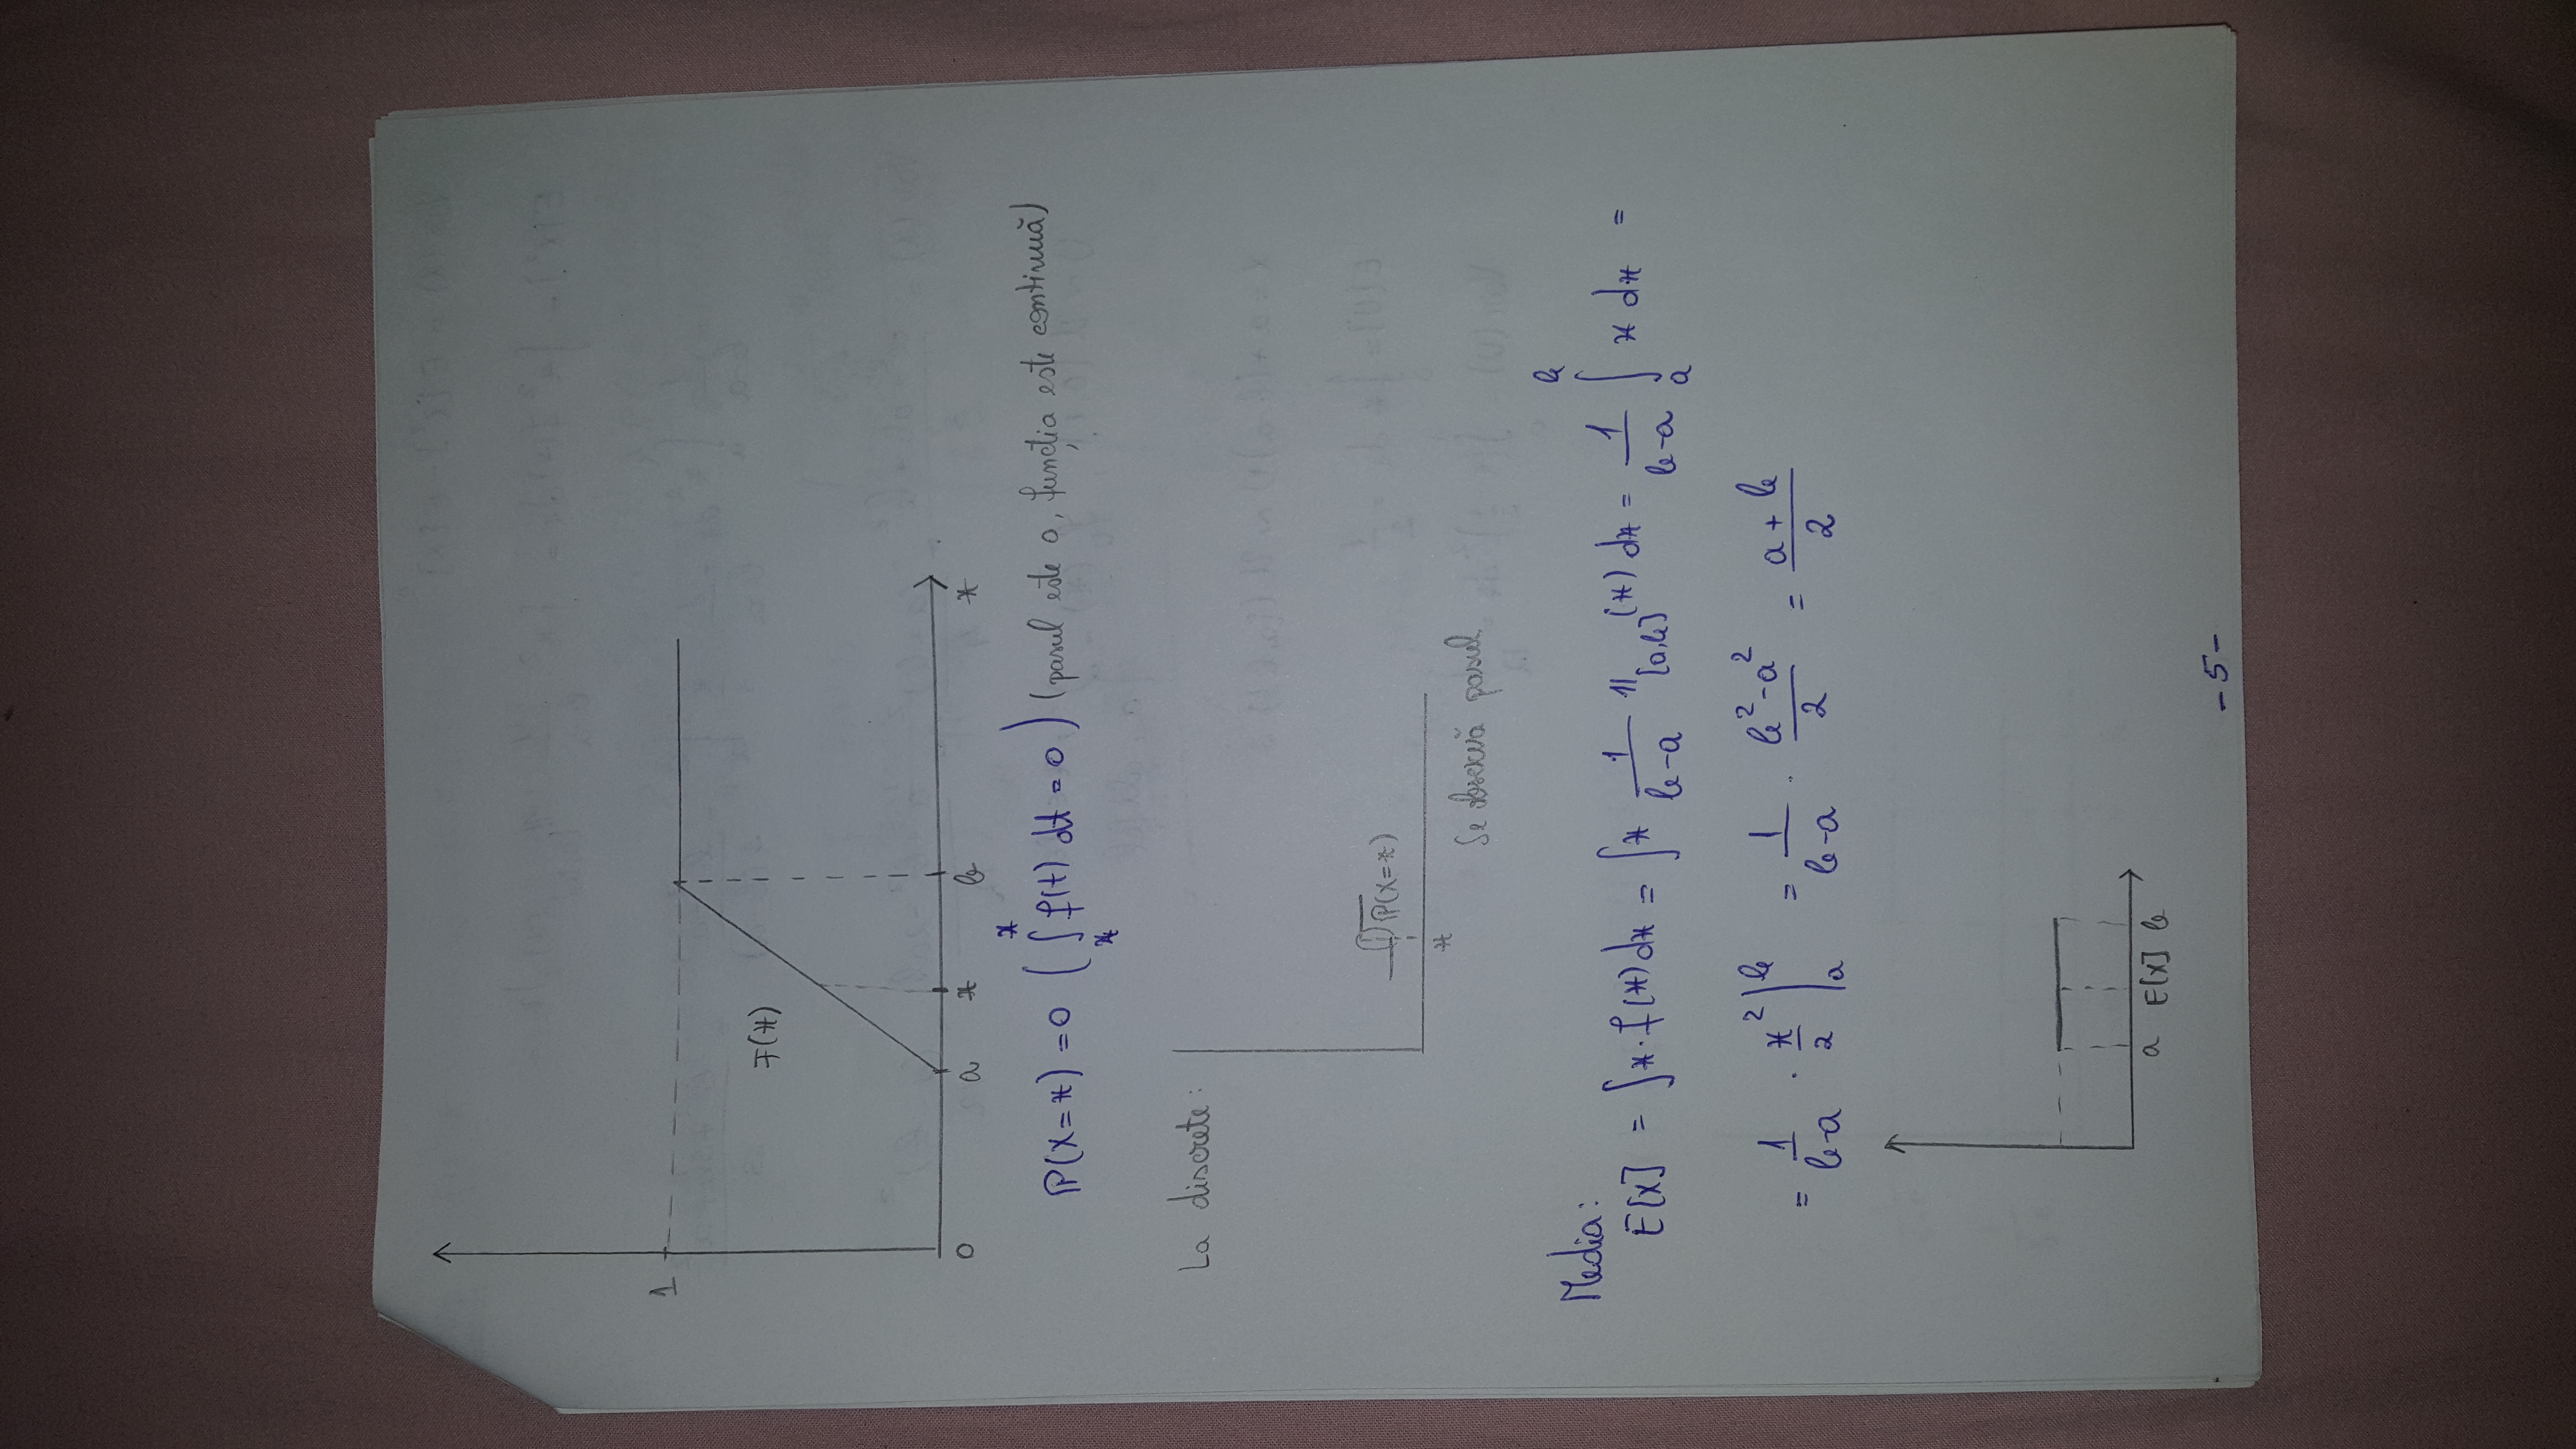 1
F(x)
0 a x b x
P(X=x) = 0 (∫_x^x f(t) dt = 0) (pasul este 0, funcția este continuă)
La discrete:
P(X=x)
x
Se observă pasul
Media:
E[X] = ∫x·f(x)dx = ∫x 1/(b-a) 𝟙_[a,b](x) dx = 1/(b-a) ∫_a^b x dx =
= 1/(b-a) · x²/2 |_a^b = 1/(b-a) · (b²-a²)/2 = (a+b)/2
a E[X] b
-5-